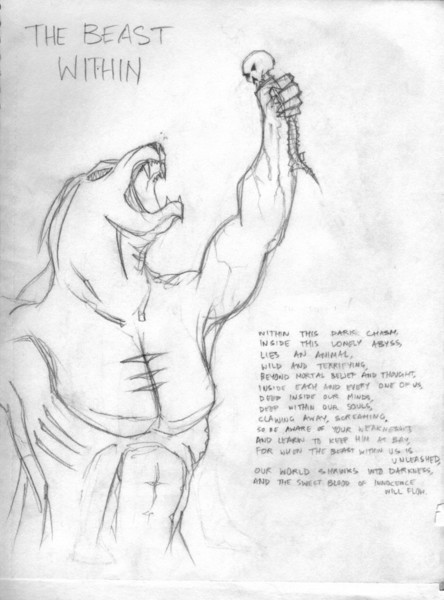 THE BEAST
WITHIN
WITHIN THIS DARK CHASM,
INSIDE THIS LONELY ABYSS,
LIES AN ANIMAL,
WILD AND TERRIFYING,
BEYOND MORTAL BELIEF AND THOUGHT,
INSIDE EACH AND EVERY ONE OF US,
DEEP INSIDE OUR MINDS,
DEEP WITHIN OUR SOULS,
CLAWING AWAY, SCREAMING,
SO BE AWARE OF YOUR WEAKNESSES
AND LEARN TO KEEP HIM AT BAY,
FOR WHEN THE BEAST WITHIN US IS
UNLEASHED,
OUR WORLD SHRINKS INTO DARKNESS,
AND THE SWEET BLOOD OF INNOCENCE
WILL FLOW.